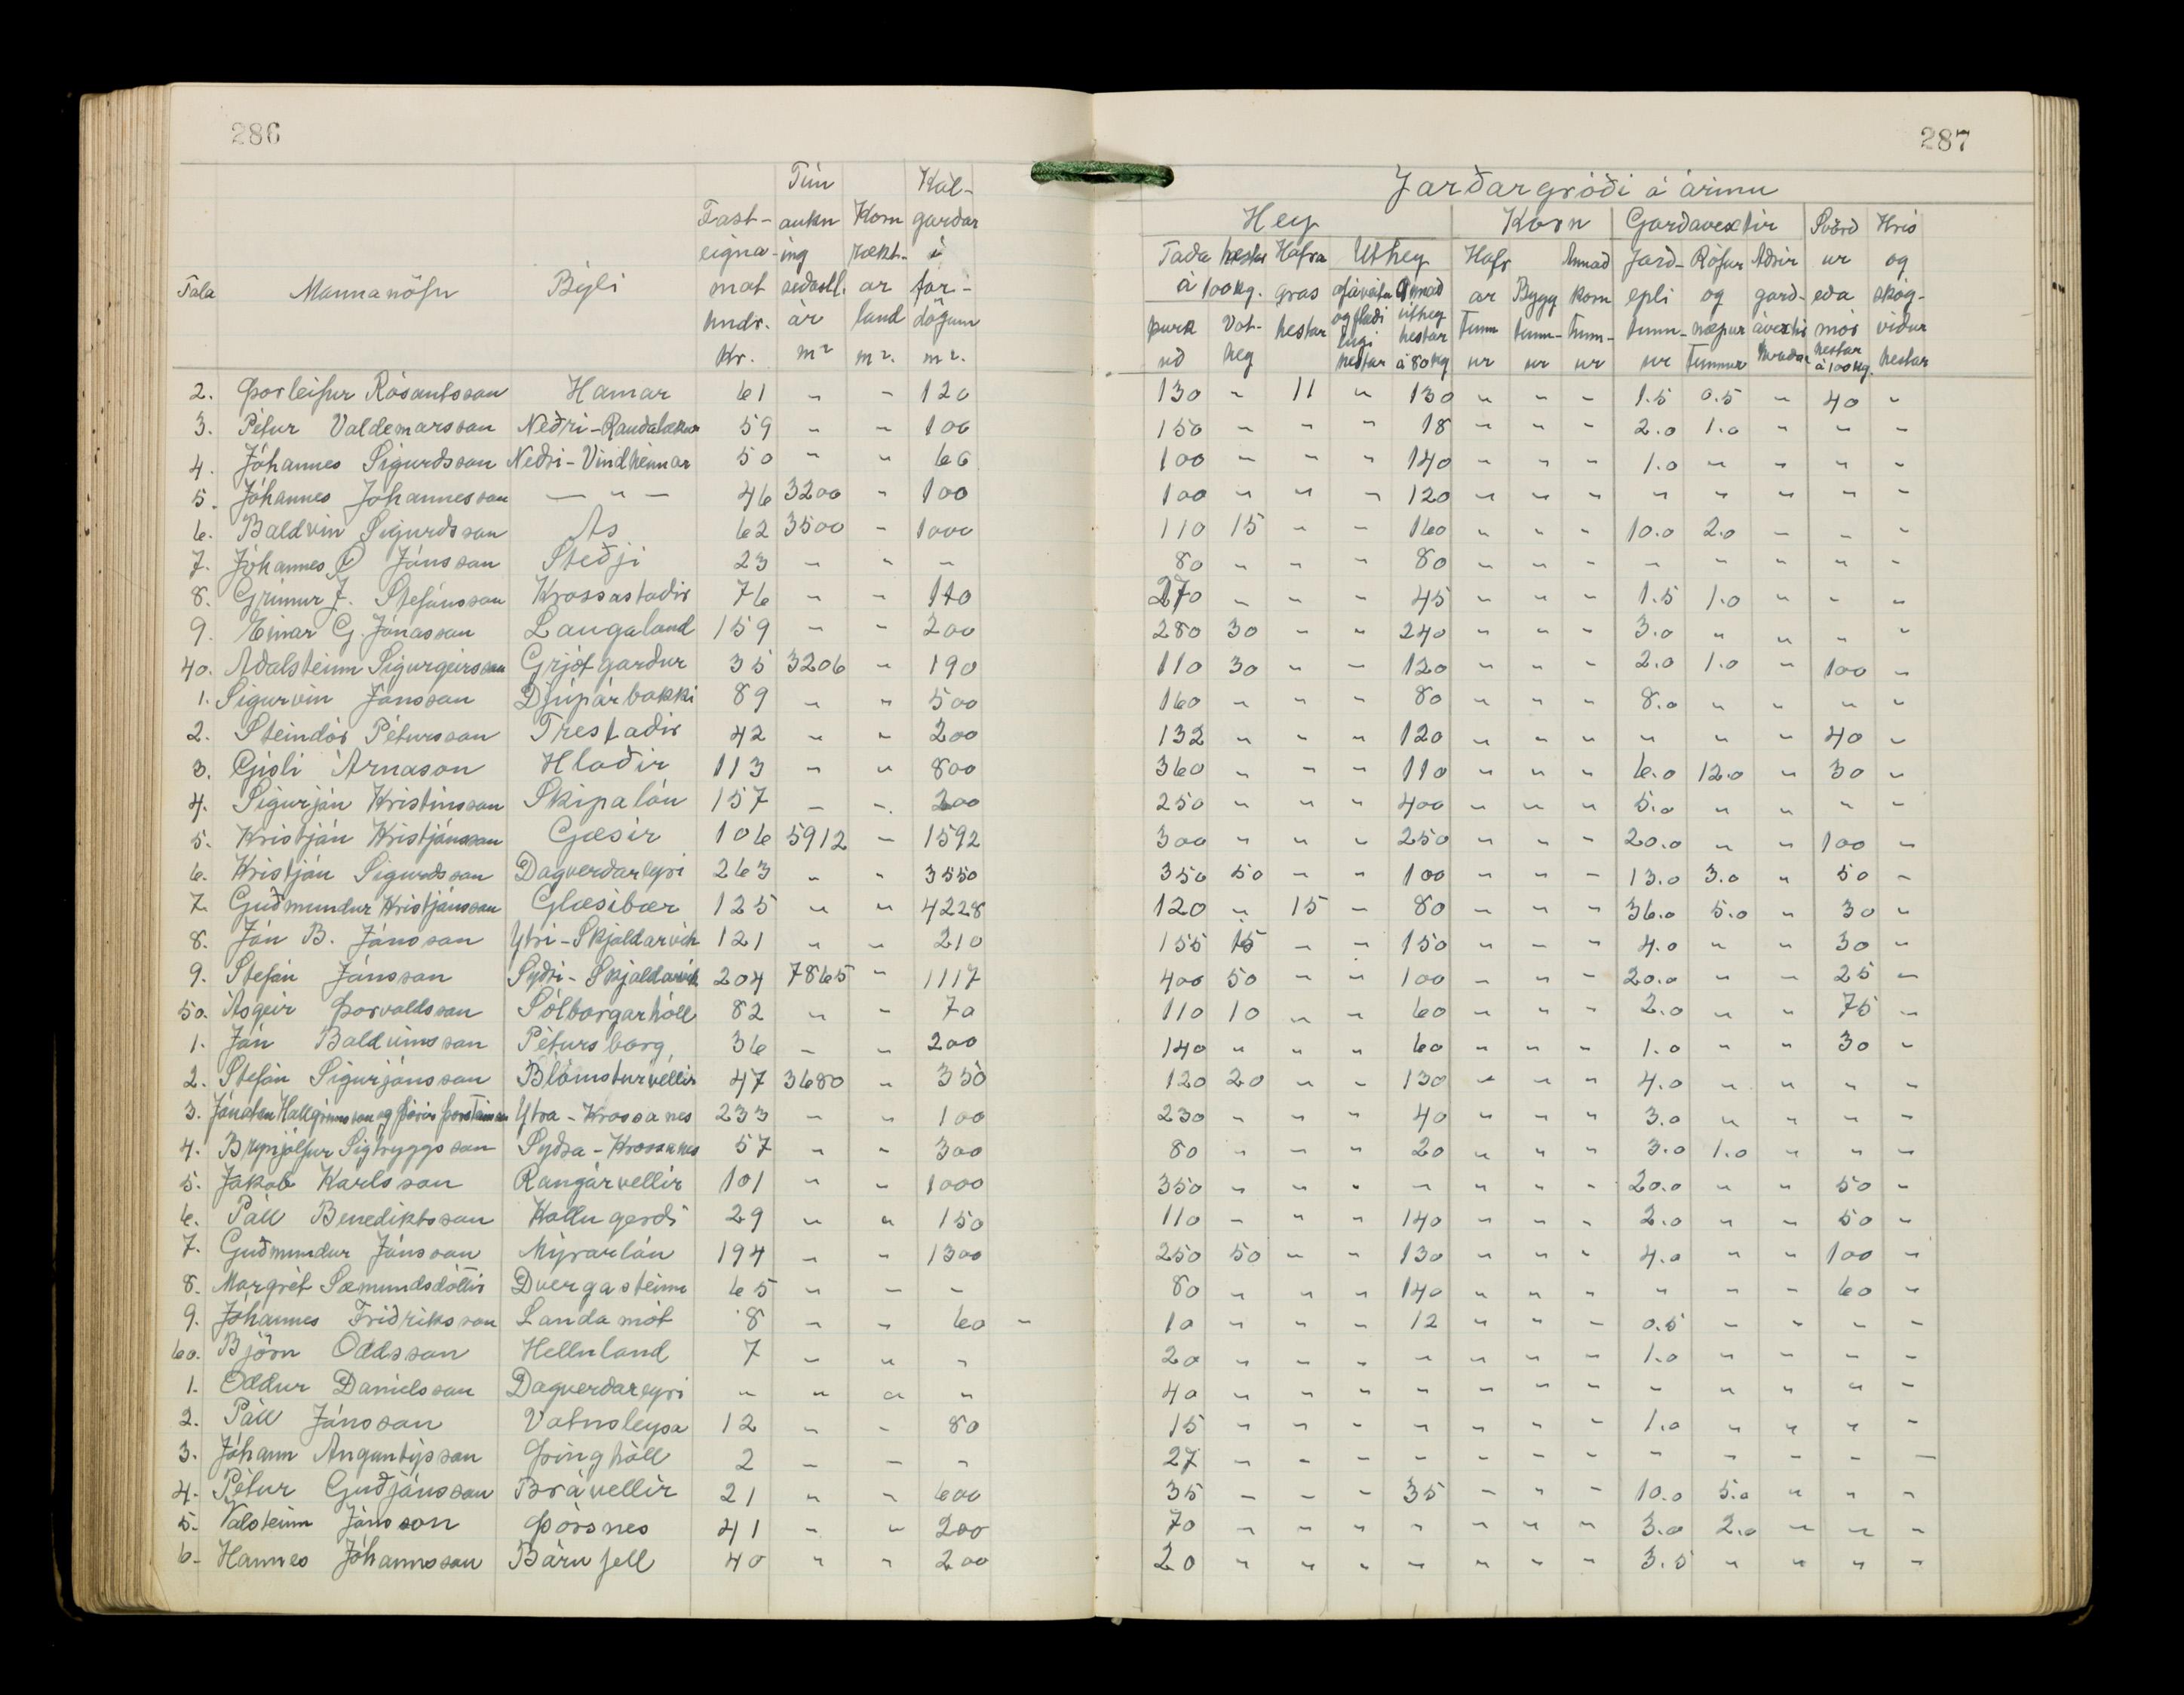 286
287
Tún Kál-
Jarðargróði á árinu
Fast- aukn Korn garðar
Hey Korn Garðavextir Svörð Hrís
eigna- ing rækt- í
Taða hestar Hafra Úthey Hafr Annað Jarð- Rófur Aðrir ur og
Tala Mannanöfn Býli mat síðastl. ar far-
á 100 kg. gras af áveitu Annað ar Bygg korn epli og garð- eða skóg-
hndr. ár land dögum
þurk Vot- hestar og flæði úthey tunn tunn- tunn- tunn- næpur ávextir mór viður
engi hestar
Kr. m² m². m².
uð hey hestar á 80 kg ur ur ur ur tunnur hestar hestar
á 100 kg.
2. Þorleifur Rósantsson Hamar 61 " - 120 130 " 11 " 130 " " - 1.5 0.5 " 40 "
3. Pétur Valdemarsson Neðri-Rauðalækur 59 " " 100 150 " " " 18 " " " 2.0 1.0 " " "
4. Jóhannes Sigurðsson Neðri-Vindheimar 50 " " 66 100 " " " 140 " " " 1.0 " " " "
5. Jóhannes Jóhannesson — " — 46 3200 " 100 100 " " " 120 " " " " " " " "
6. Baldvin Sigurðsson Ás 62 3500 - 1000 110 15 " " 160 " " " 10.0 2.0 - - "
7. Jóhannes Ó Jónsson Steðji 23 " " " 80 " " " 80 " " " " " " " "
8. Grímur J. Stefánsson Krossastaðir 76 " " 110 270 " " " 45 " " " 1.5 1.0 " " "
9. Einar G. Jónasson Laugaland 159 " " 200 280 30 " " 240 " " " 3.0 " " " "
40. Aðalsteinn Sigurgeirsson Grjótgarður 35 3206 " 190 110 30 " " 120 " " " 2.0 1.0 " 100 "
1. Sigurvin Jónsson Djúpárbakki 89 " " 500 160 " " " 80 " " " 8.0 " " " "
2. Steindór Pétursson Tréstaðir 42 " " 200 132 " " " 120 " " " " " " 40 "
3. Gísli Árnason Hlaðir 113 " " 800 360 " " " 110 " " " 6.0 12.0 " 30 "
4. Sigurján Kristinsson Skipalón 157 " " 200 250 " " " 400 " " " 5.0 " " " "
5. Kristján Kristjánsson Gæsir 106 5912 - 1592 300 " " " 250 " " " 20.0 " " 100 "
6. Kristján Sigurðsson Dagverðareyri 263 " " 3550 350 50 " " 100 " " " 13.0 3.0 " 50 "
7. Guðmundur Kristjánsson Glæsibær 125 " " 4228 120 " 15 - 80 " " " 36.0 5.0 " 30 "
8. Jón B. Jónsson Ytri-Skjaldarvík 121 " " 210 155 15 " " 150 " " " 4.0 " " 30 "
9. Stefán Jónsson Syðri-Skjaldarvík 204 7865 " 1117 400 50 " " 100 " " " 20.0 " " 25 "
50. Ásgeir Þorvaldsson Sólborgarhóll 82 " " 70 110 10 " " 60 " " " 2.0 " " 75 "
1. Jón Baldvinsson Pétursborg 36 " " 200 140 " " " 60 " " " 1.0 " " 30 "
2. Stefán Sigurjónsson Blómsturvellir 47 3680 " 350 120 20 " " 130 " " " 4.0 " " " "
3. Jónatan Hallgrímsson og Þórir Þorsteinsson Ytra-Krossanes 233 " " 100 230 " " " 40 " " " 3.0 " " " "
4. Brynjólfur Sigtryggsson Syðra-Krossanes 57 " " 300 80 " " " 20 " " " 3.0 1.0 " " "
5. Jakob Karlsson Rangárvellir 101 " " 1000 350 " " " " " " " 20.0 " " 50 "
6. Páll Benediktsson Kollugerði 29 " " 150 110 " " " 140 " " " 2.0 " " 50 "
7. Guðmundur Jónsson Mýrarlón 194 " " 1300 250 50 " " 130 " " " 4.0 " " 100 "
8. Margrét Sæmundsdóttir Dvergasteinn 65 " " " 80 " " " 140 " " " " " " 60 "
9. Jóhannes Friðriksson Landamót 8 " " 60 " 10 " " " 12 " " " 0.5 " " " "
60. Björn Oddsson Hellnland 7 " " " 20 " " " " " " " 1.0 " " " "
1. Oddur Daníelsson Dagverðareyri " " " " 40 " " " " " " " " " " " "
2. Páll Jónsson Vatnsleysa 12 " " 80 15 " " " " " " " 1.0 " " " "
3. Jóhann Angantýsson Þinghóll 2 " " " 27 " " " " " " " " " " " -
4. Pétur Guðjónsson Brávellir 21 " " 600 35 " " " 35 " " " 10.0 5.0 " " "
5. Valsteinn Jónsson Þórsnes 41 " " 200 70 " " " " " " " 3.0 2.0 " " "
6. Hannes Jóhannsson Bárufell 40 " " 200 20 " " " " " " " 3.5 " " " "